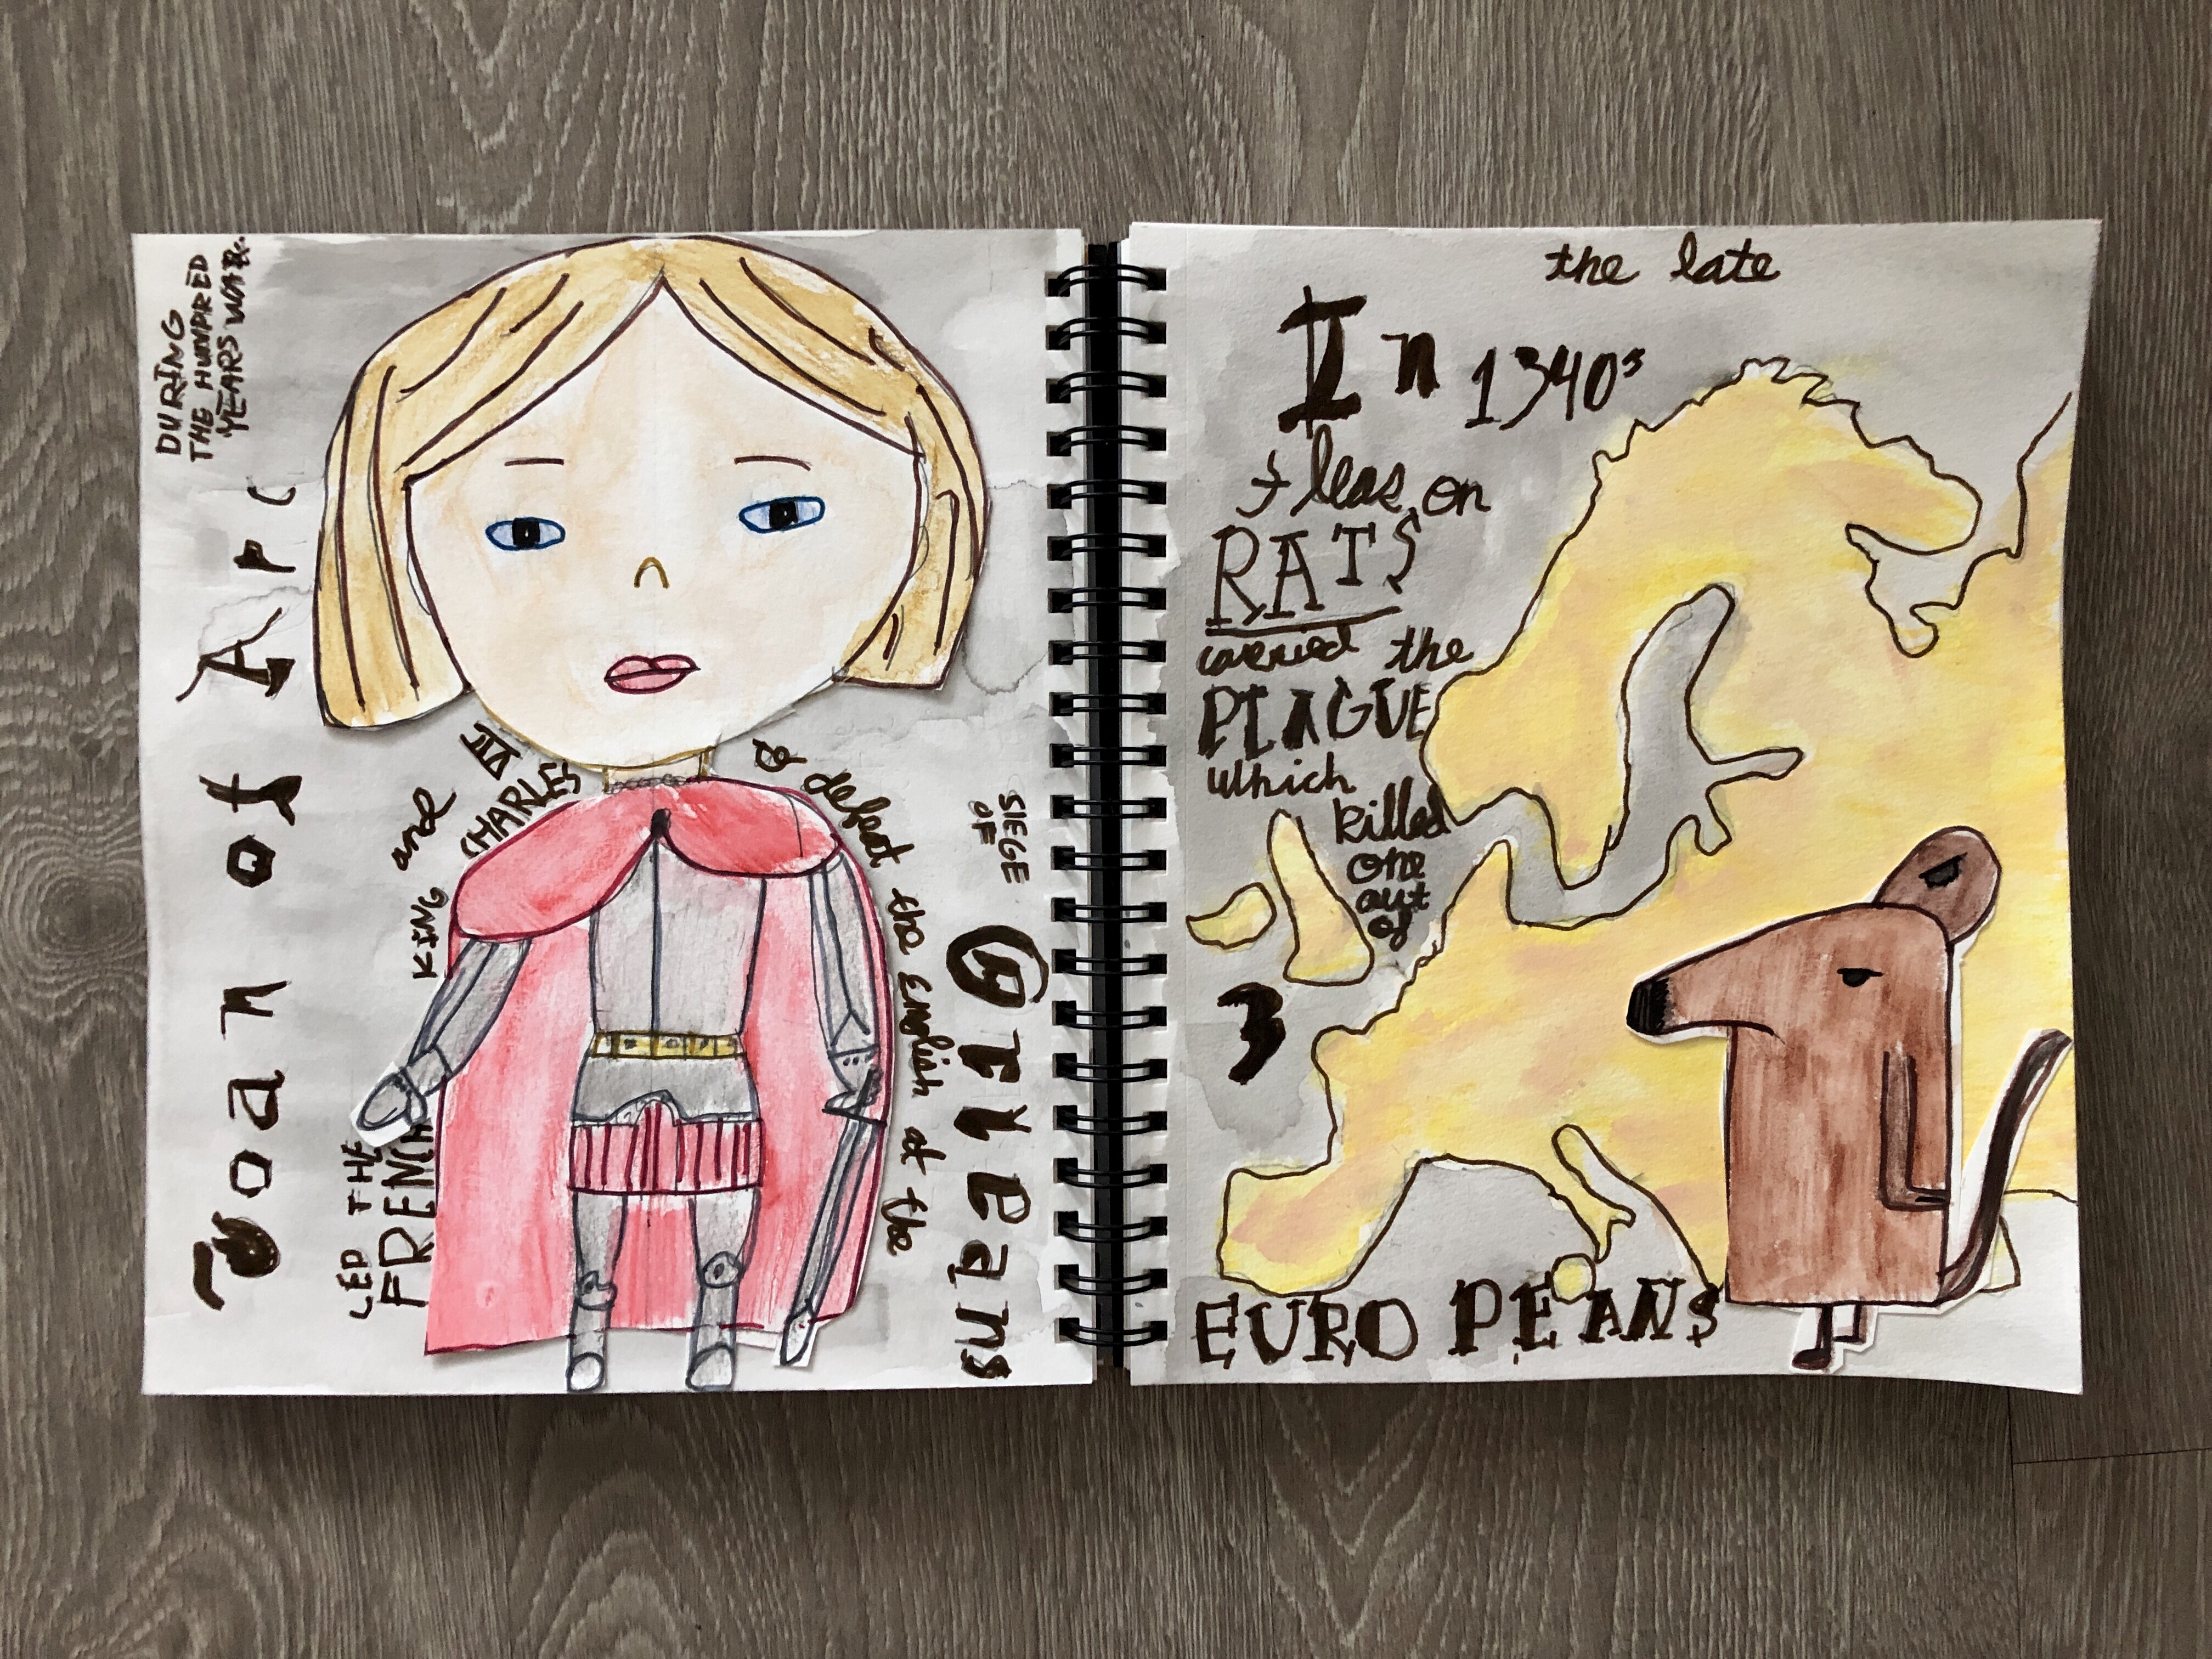 DURING
THE HUNDRED
YEARS WAR
Joan of Arc
LED THE
FRENCH
KING and
CHARLES
VII
to defeat the English at the
SIEGE
OF
Orleans
the late
In 1340s
fleas on
RATS
carried the
PLAGUE
which
killed
one
out
of
3
EUROPEANS